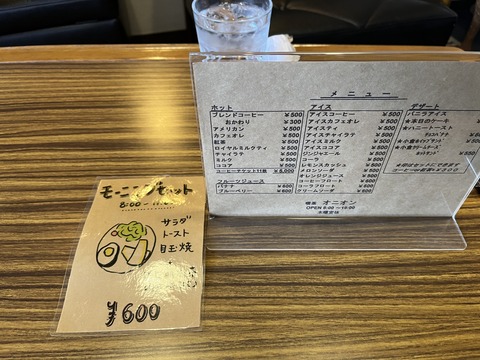 メニュー
ホット
ブレンドコーヒー ¥500
おかわり ¥300
アメリカン ¥500
カフェオレ ¥500
紅茶 ¥500
ロイヤルミルクティ ¥500
チャイラテ ¥500
ミルク ¥500
ココア ¥500
コーヒーチケット11枚 ¥5,000
フルーツジュース
バナナ ¥600
ブルーベリー ¥600
アイス
アイスコーヒー ¥500
アイスカフェオレ ¥500
アイスティ ¥500
アイスチャイラテ ¥500
アイスミルク ¥500
アイスココア ¥500
ジンジャエール ¥500
コーラ ¥500
レモンスカッシュ ¥500
メロンソーダ ¥500
オレンジジュース
コーヒーフロート
コーラフロート
クリームソーダ
デザート
バニラアイス
★本日のケーキ
★ハニートースト
喫茶 オニオン
OPEN 8:00～18:00
木曜定休
モーニングセット
8:00
サラダ
トースト
目玉焼
¥600